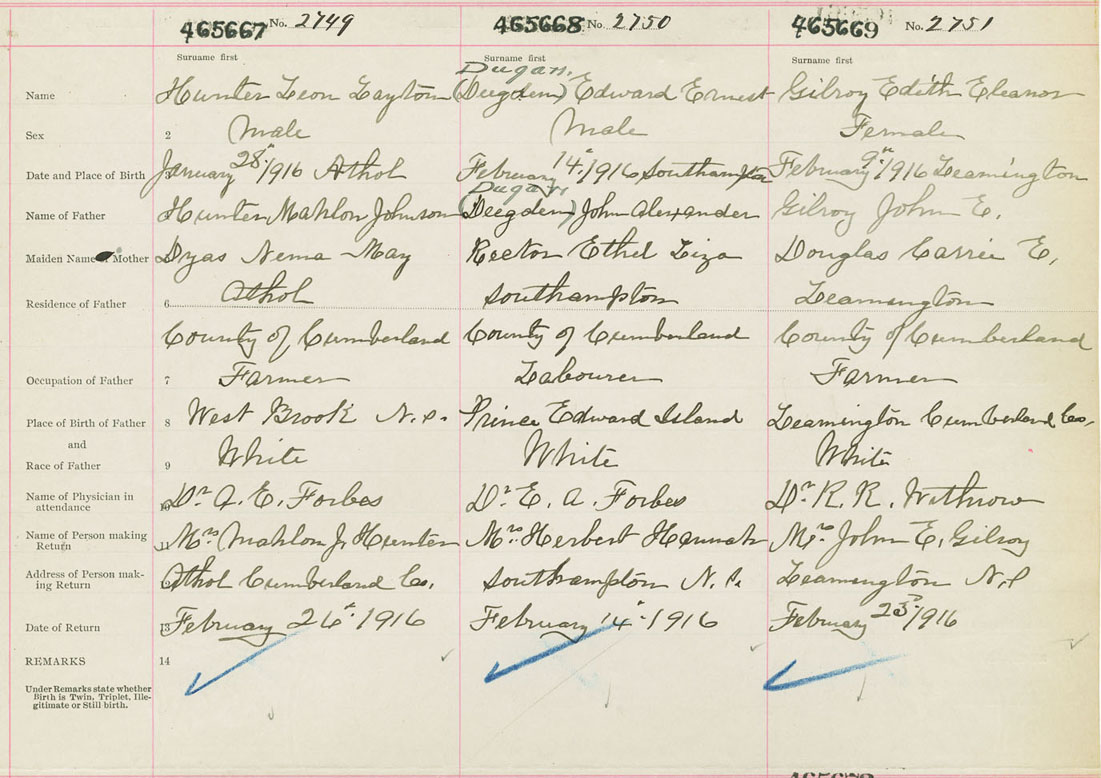 465667 No. 2749 465668 No. 2750 465669 No. 2751
Surname first Surname first Surname first
Dugan,
Name Hunter Leon Layton (Deegden) Edward Ernest Gilroy Edith Eleanor
Sex 2 Male Male Female
Date and Place of Birth 3 January 28th 1916 Athol February 14th 1916 Southampton February 9th 1916 Leamington
Dugan
Name of Father Hunter Mahlon Johnson (Deegden) John Alexander Gilroy John E.
Maiden Name of Mother Dyas Nema May Rector Ethel Liza Douglas Carrie E,
Residence of Father 6 Athol Southampton Leamington
County of Cumberland County of Cumberland County of Cumberland
Occupation of Father 7 Farmer Labourer Farmer
Place of Birth of Father 8 West Brook N.S. Prince Edward Island Leamington Cumberland Co,
and
Race of Father 9 White White White
Name of Physician in
attendance 10 Dr A. E. Forbes Dr E. A. Forbes Dr R. R. Withrow
Name of Person making
Return 11 Mrs Mahlon J. Hunter Mrs Herbert Hannah Mrs John E. Gilroy
Address of Person mak-
ing Return 12 Athol Cumberland Co. Southampton N.S. Leamington N.S
Date of Return 13 February 26th 1916 February 14th 1916 February 23rd 1916
REMARKS 14
Under Remarks state whether
Birth is Twin, Triplet, Ille-
gitimate or Still birth.